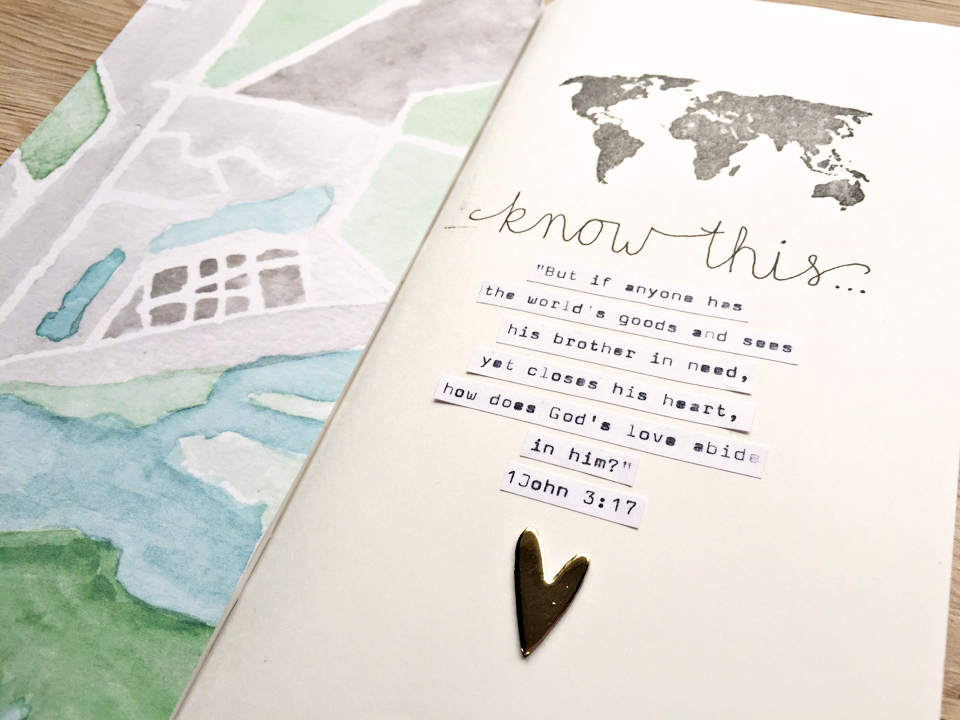 know this...
"But if anyone has
the world's goods and sees
his brother in need,
yet closes his heart,
how does God's love abide
in him?"
1John 3:17